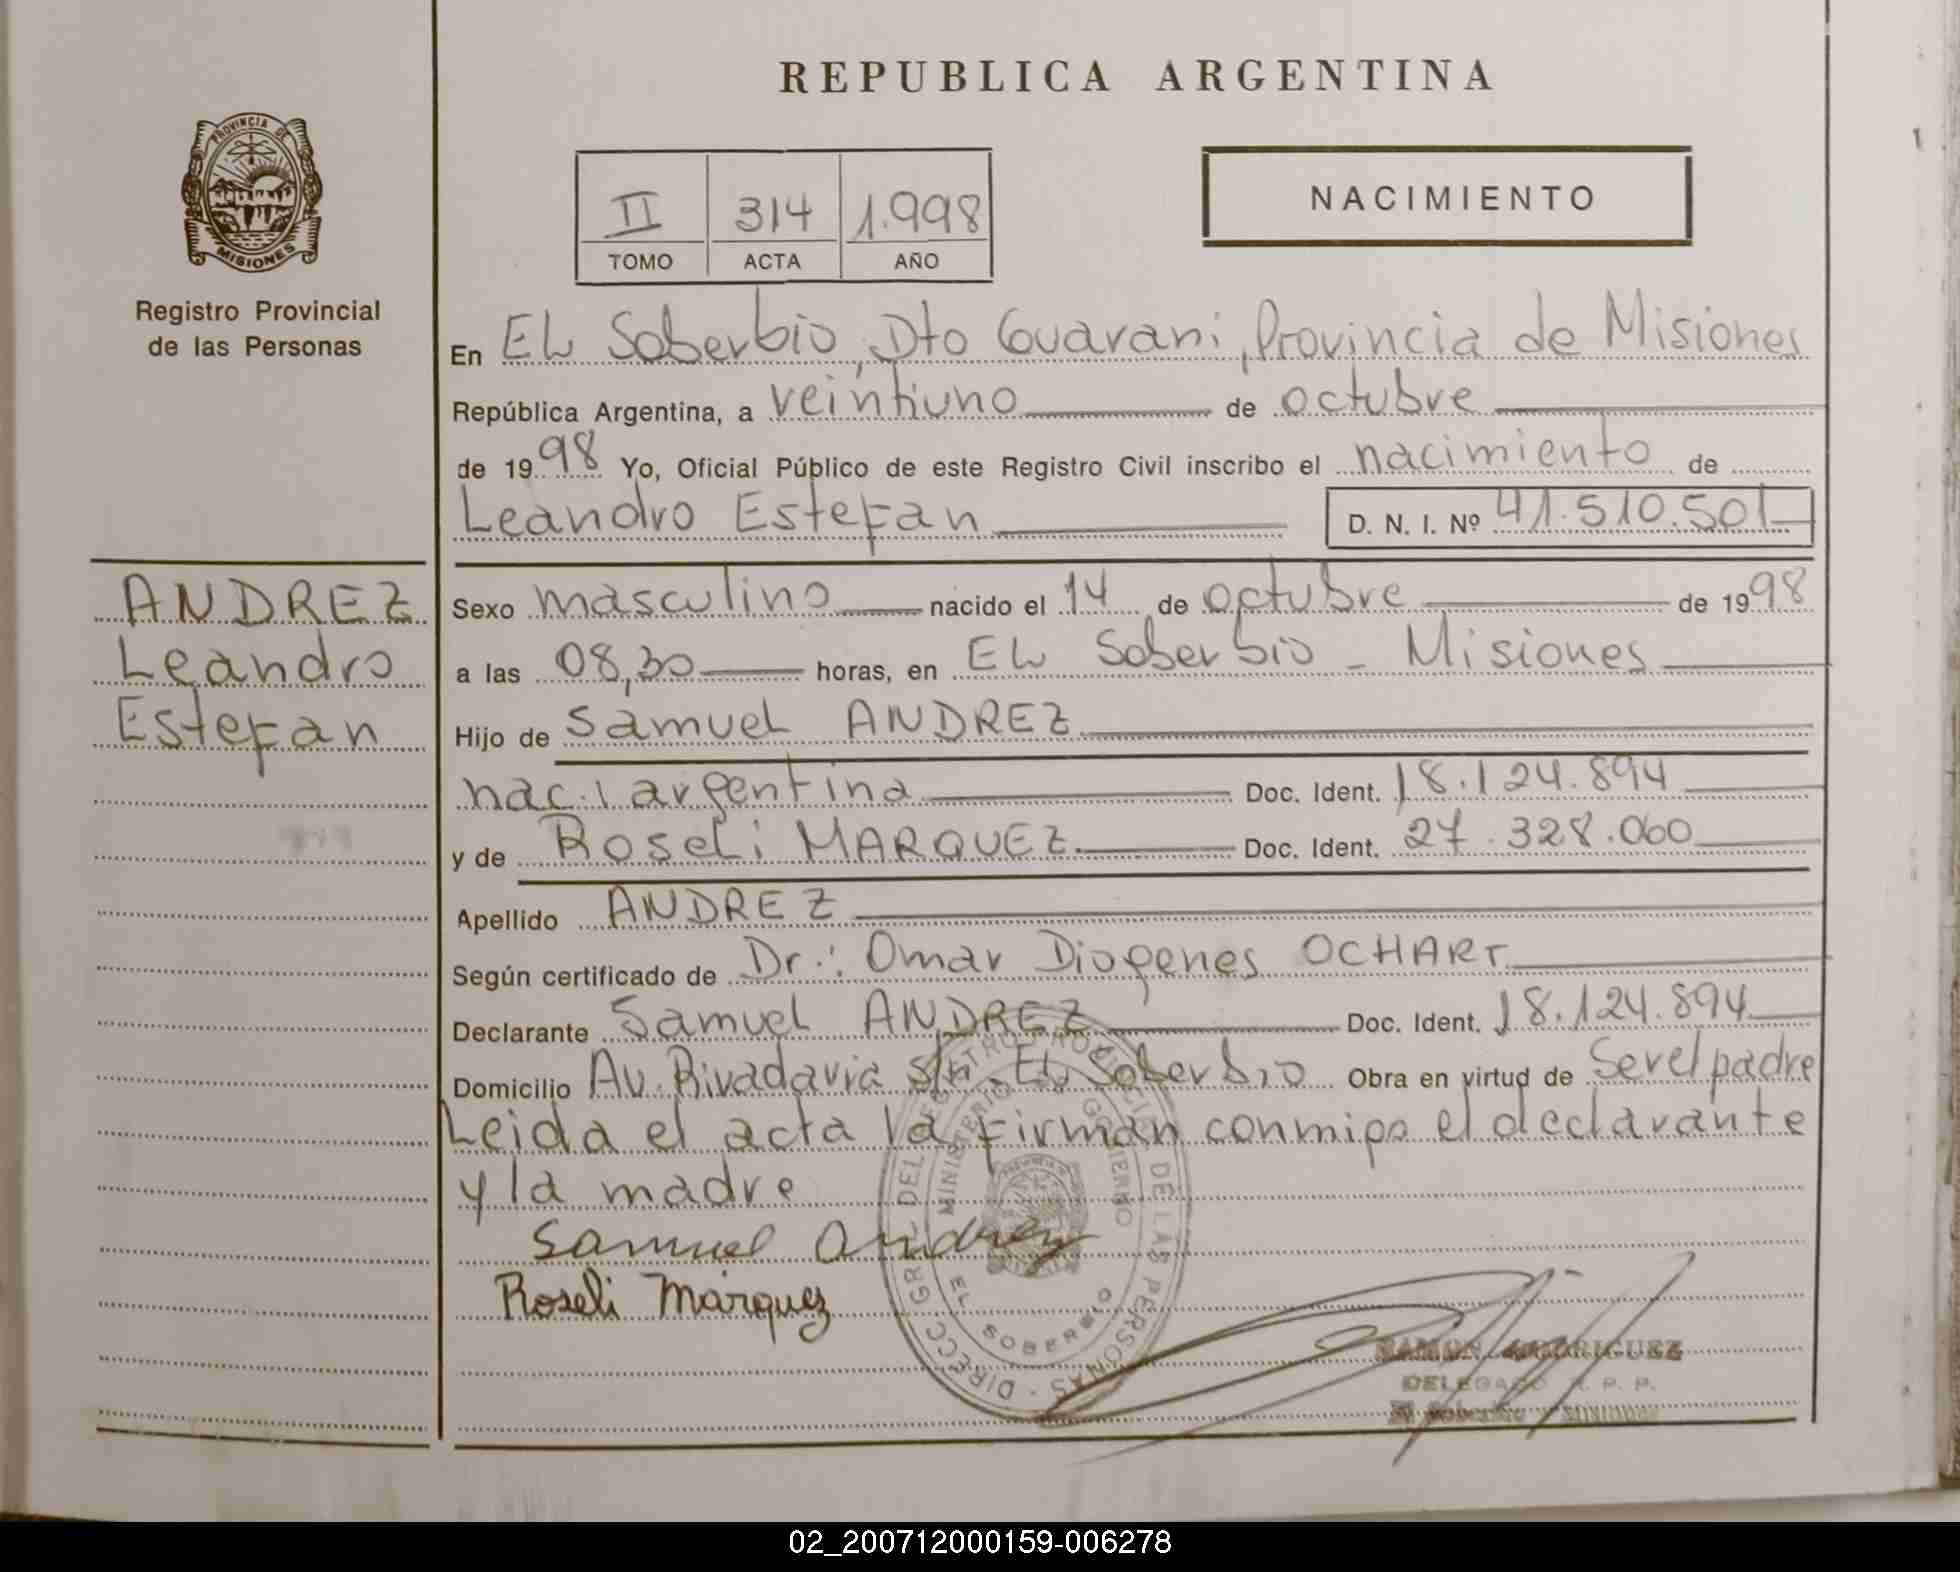 REPUBLICA ARGENTINA
PROVINCIA DE
MISIONES
Registro Provincial
de las Personas
II 314 1.998
TOMO ACTA AÑO
NACIMIENTO
En El Soberbio, Dto Guarani, Provincia de Misiones
República Argentina, a veintiuno de octubre
de 1998 Yo, Oficial Público de este Registro Civil inscribo el nacimiento de
Leandro Estefan D. N. I. Nº 41.510.501
ANDREZ
Leandro
Estefan
Sexo masculino nacido el 14 de octubre de 1998
a las 08,30 horas, en El Soberbio - Misiones
Hijo de Samuel ANDREZ
nac. argentina Doc. Ident. 18.124.894
y de Roseli MARQUEZ Doc. Ident. 27.328.060
Apellido ANDREZ
Según certificado de Dr.: Omar Diogenes OCHART
Declarante Samuel ANDREZ Doc. Ident. 18.124.894
Domicilio Av. Rivadavia S/n. El Soberbio Obra en virtud de Ser el padre
Leida el acta la firman conmigo el declarante
y la madre
Samuel Andrez
Roseli Márquez
DIRECC GRL DEL REGISTRO PROVINCIAL DE LAS PERSONAS
MINISTERIO DE GOBIERNO
EL SOBERBIO
RAMON RODRIGUEZ
DELEGADO R. P. P.
El Soberbio - Misiones
02_200712000159-006278